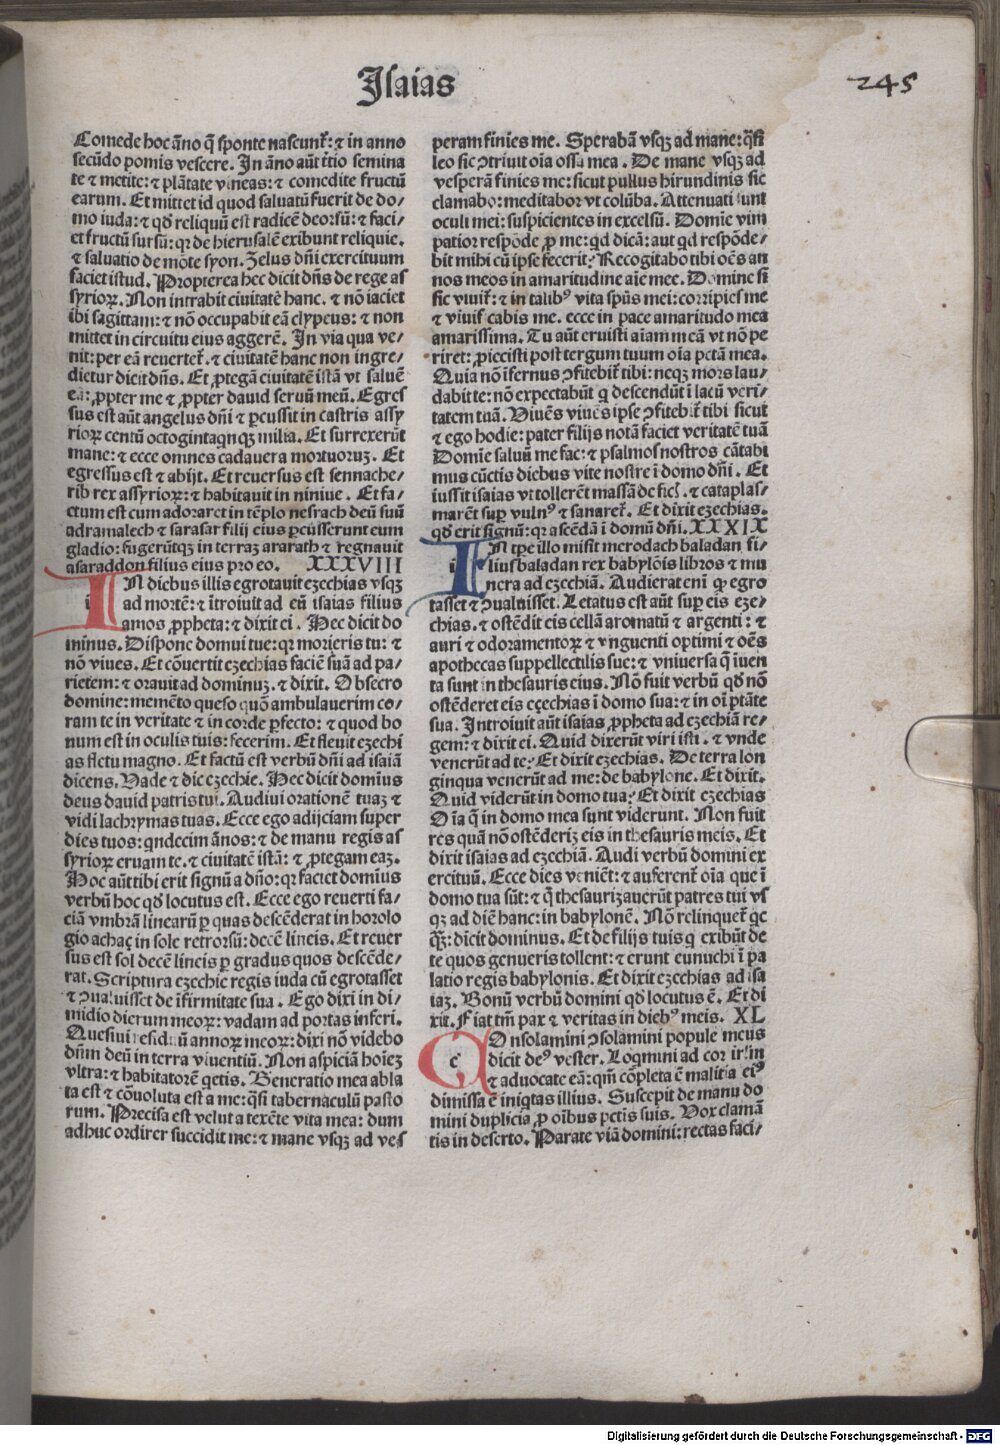 Isaias
245
Comede hoc āno q̄ sponte nascunt᷑: ⁊ in anno
secūdo pomis vescere. In āno aūt t̄tio semina
te ⁊ metite: ⁊ plātate vineas: ⁊ comedite fructū
earum. Et mittet id quod saluatū fuerit de do/
mo iuda: ⁊ qd̄ reliquū est radicē deorsū: ⁊ faci/
et fructū sursū: qꝛ de hierusalē exibunt reliquie.
⁊ saluatio de mōte syon. Zelus dn̄i exercituum
faciet istud. Propterea hec dicit dn̄s de rege as
syrioꝝ. Non intrabit ciuitatē hanc. ⁊ nō iaciet
ibi sagittam: ⁊ nō occupabit eā clypeus: ⁊ non
mittet in circuitu eius aggerē. In via qua ve/
nit: per eā reuertet᷑. ⁊ ciuitatē hanc non ingre/
dietur dicit dn̄s. Et ꝓtegā ciuitatē istā vt saluē
eā: ꝓpter me ⁊ ꝓpter dauid seruū meū. Egres
sus est aūt angelus dn̄i ⁊ ꝑcussit in castris assy
rioꝝ centū octogintaqnqꝫ milia. Et surrexerūt
mane: ⁊ ecce omnes cadauera mortuoruꝫ. Et
egressus est ⁊ abijt. Et reuersus est sennache/
rib rex assyrioꝝ: ⁊ habitauit in niniue. Et fa/
ctum est cum adoraret in tēplo nesrach deū suū
adramalech ⁊ sarasar filij eius ꝑcusserunt eum
gladio: fugerūtqꝫ in terraꝫ ararath ⁊ regnauit
asaraddon filius eius pro eo. XXXVIII
IN diebus illis egrotauit ezechias vsqꝫ
ad mortē: ⁊ ītroiuit ad eū isaias filius
amos ꝓpheta: ⁊ dixit ei. Hec dicit do
minus. Dispone domui tue: qꝛ morieris tu: ⁊
nō viues. Et cōuertit ezechias faciē suā ad pa/
rietem: ⁊ orauit ad dominuꝫ. ⁊ dixit. Obsecro
domine: memēto queso quō ambulauerim co/
ram te in veritate ⁊ in corde ꝑfecto: ⁊ quod bo
num est in oculis tuis: fecerim. Et fleuit ezechi
as fletu magno. Et factū est verbū dn̄i ad isaiā
dicens. Vade ⁊ dic ezechie. Hec dicit domīus
deus dauid patris tui. Audiui orationē tuaꝫ ⁊
vidi lachrymas tuas. Ecce ego adijciam super
dies tuos: qndecim ānos: ⁊ de manu regis as
syrioꝝ eruam te. ⁊ ciuitatē istā: ⁊ ꝓtegam eaꝫ.
Hoc aūt tibi erit signū a dn̄o: qꝛ faciet domīus
verbū hoc qd̄ locutus est. Ecce ego reuerti fa/
ciā vmbrā linearū ꝑ quas descēderat in horolo
gio achaç in sole retrorsū: decē lineis. Et reuer
sus est sol decē lineis ꝑ gradus quos descēde/
rat. Scriptura ezechie regis iuda cū egrotasset
⁊ ꝯualuisset de īfirmitate sua. Ego dixi in di/
midio dierum meoꝝ: vadam ad portas inferi.
Quesiui residuū annoꝝ meoꝝ: dixi nō videbo
dn̄m deū in terra viuentiū. Non aspiciā hoīeꝫ
vltra: ⁊ habitatorē qetis. Generatio mea abla
ta est ⁊ cōuoluta est a me: qͣsi tabernaculū pasto
rum. Precisa est velut a texēte vita mea: dum
adhuc ordirer succidit me: ⁊ mane vsqꝫ ad ves
peram finies me. Sperabā vsqꝫ ad mane: qͣsi
leo sic ꝯtriuit oīa ossa mea. De mane vsqꝫ ad
vesperā finies me: sicut pullus hirundinis sic
clamabo: meditabor vt colūba. Attenuati sunt
oculi mei: suspicientes in excelsū. Domīe vim
patior respōde ꝓ me: qd dicā: aut qd respōde/
bit mihi cū ipse fecerit? Recogitabo tibi oēs an
nos meos in amaritudine aīe mee. Domine si
sic viuit᷑: ⁊ in talibꝰ vita spūs mei: corripies me
⁊ viuificabis me. ecce in pace amaritudo mea
amarissima. Tu aūt eruisti aīam meā vt nō pe
riret: ꝓiecisti post tergum tuum oīa pctā mea.
Quia nō īfernus ꝯfitebit᷑ tibi: neqꝫ mors lau/
dabit te: nō expectabūt q descendūt ī lacū veri/
tatem tuā. Viuēs viuēs ipse ꝯfitebit᷑ tibi sicut
⁊ ego hodie: pater filijs notā faciet veritatē tuā
Domīe saluū me fac: ⁊ psalmos nostros cātabi
mus cūctis diebus vite nostre ī domo dn̄i. Et
iussit isaias vt tollerēt massā de fic̄. ⁊ cataplas/
marēt suꝑ vulnꝰ ⁊ sanaret᷑. Et dixit ezechias.
qd̄ erit signū: qꝛ ascēdā ī domū dn̄i. XXXIX
IN tꝑe illo misit merodach baladan fi/
lius baladan rex babylōis libros ⁊ mu
nera ad ezechiā. Audierat enī ꝙ egro
tasset ⁊ ꝯualuisset. Letatus est aūt suꝑ eis eze/
chias. ⁊ ostēdit eis cellā aromatū ⁊ argenti: ⁊
auri ⁊ odoramentoꝝ ⁊ vnguenti optimi ⁊ oēs
apothecas suppellectilis sue: ⁊ vniuersa q̄ īuen
ta sunt in thesauris eius. Nō fuit verbū qd̄ nō
ostēderet eis eçechias ī domo sua: ⁊ in oī ptāte
sua. Introiuit aūt isaias ꝓpheta ad ezechiā re/
gem: ⁊ dixit ei. Quid dixerūt viri isti. ⁊ vnde
venerūt ad te? Et dixit ezechias. De terra lon
ginqua venerūt ad me: de babylone. Et dixit.
Quid viderūt in domo tua? Et dixit ezechias
Oīa q̄ in domo mea sunt viderunt. Non fuit
res quā nō ostēderiꝫ eis in thesauris meis. Et
dixit isaias ad ezechiā. Audi verbū domini ex
ercituū. Ecce dies veniēt: ⁊ auferent᷑ oīa que ī
domo tua sūt: ⁊ q̄ thesaurizauerūt patres tui vs
qꝫ ad diē hanc: in babylonē. Nō relinquet᷑ qc
qͣꝫ: dicit dominus. Et de filijs tuis q exibūt de
te quos genueris tollent: ⁊ erunt eunuchi ī pa
latio regis babylonis. Et dixit ezechias ad isa
iaꝫ. Bonū verbū domini qd̄ locutus ē. Et di
xit. Fiat tm̄ pax ⁊ veritas in diebꝰ meis. XL
COnsolamini ꝯsolamini popule meus
dicit deꝰ vester. Loqmini ad cor irl̄m
⁊ aduocate eā: qm̄ cōpleta ē malitia eiꝰ
dimissa ē iniqtas illius. Suscepit de manu do
mini duplicia ꝓ oībus pctis suis. Vox clamā
tis in deserto. Parate viā domini: rectas faci/
Digitalisierung gefördert durch die Deutsche Forschungsgemeinschaft - DFG